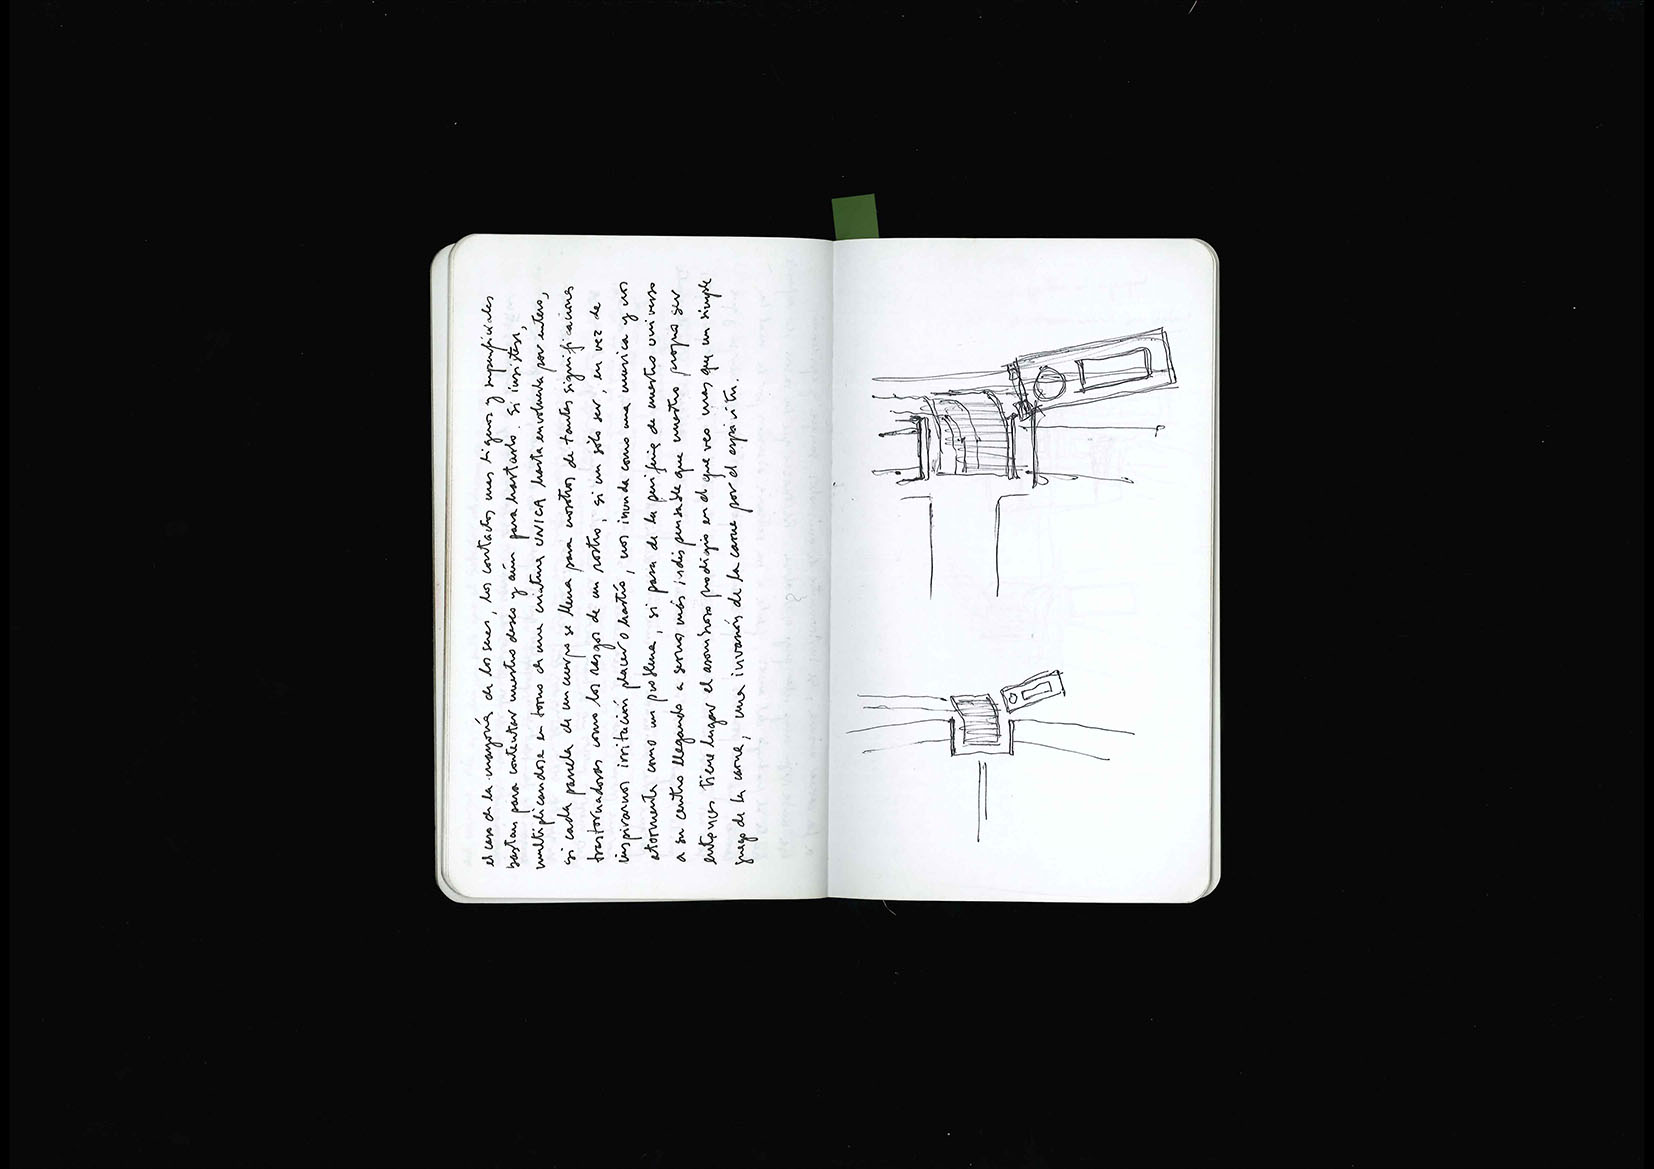 el caso de la mayoría de los seres, los contactos más ligeros y superficiales
bastan para contentar nuestro deseo y aún para hartarlo. Si insisten,
multiplicandose en torno de una criatura UNICA hasta envolverla por entero,
si cada parcela de un cuerpo se llena para nosotros de tantas significaciones
trastornadoras como los rasgos de un rostro, si un sólo ser, en vez de
inspirarnos irritación placer o hastío, nos inunda como una musica y nos
atormenta como un problema, si pasa de la periferia de nuestro universo
a su centro llegando a sernos más indispensable que nuestro propio ser
entonces tiene lugar el asombroso prodigio en el que veo mas que un simple
juego de la carne, una invasión de la carne por el espiritu.